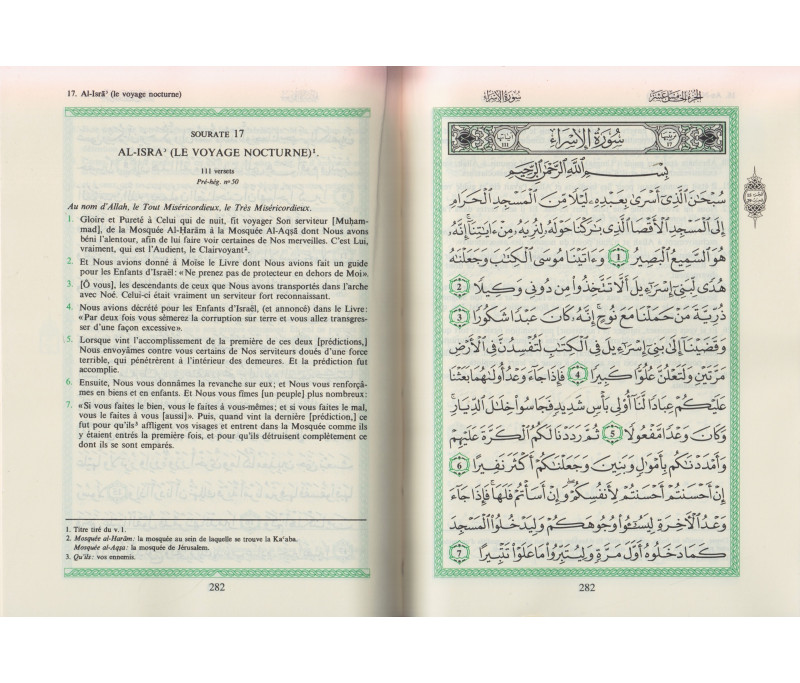 17. Al-Isrā' (le voyage nocturne)
SOURATE 17
AL-ISRA' (LE VOYAGE NOCTURNE)¹.
111 versets
Pré-hég. n° 50
Au nom d'Allah, le Tout Miséricordieux, le Très Miséricordieux.
1. Gloire et Pureté à Celui qui de nuit, fit voyager Son serviteur [Muḥam-
mad], de la Mosquée Al-Ḥarām à la Mosquée Al-Aqṣā dont Nous avons
béni l'alentour, afin de lui faire voir certaines de Nos merveilles. C'est Lui,
vraiment, qui est l'Audient, le Clairvoyant².
2. Et Nous avions donné à Moïse le Livre dont Nous avions fait un guide
pour les Enfants d'Israël: «Ne prenez pas de protecteur en dehors de Moi».
3. [Ô vous], les descendants de ceux que Nous avons transportés dans l'arche
avec Noé. Celui-ci était vraiment un serviteur fort reconnaissant.
4. Nous avions décrété pour les Enfants d'Israël, (et annoncé) dans le Livre:
«Par deux fois vous sèmerez la corruption sur terre et vous allez transgres-
ser d'une façon excessive».
5. Lorsque vint l'accomplissement de la première de ces deux [prédictions,]
Nous envoyâmes contre vous certains de Nos serviteurs doués d'une force
terrible, qui pénétrèrent à l'intérieur des demeures. Et la prédiction fut
accomplie.
6. Ensuite, Nous vous donnâmes la revanche sur eux; et Nous vous renforçâ-
mes en biens et en enfants. Et Nous vous fîmes [un peuple] plus nombreux:
7. «Si vous faites le bien, vous le faites à vous-mêmes; et si vous faites le mal,
vous le faites à vous [aussi]». Puis, quand vint la dernière [prédiction,] ce
fut pour qu'ils³ affligent vos visages et entrent dans la Mosquée comme ils
y étaient entrés la première fois, et pour qu'ils détruisent complètement ce
dont ils se sont emparés.
1. Titre tiré du v.1.
2. Mosquée al-Harām: la mosquée au sein de laquelle se trouve la Ka'aba.
Mosquée al-Aqṣa: la mosquée de Jérusalem.
3. Qu'ils: vos ennemis.
282
سُورَةُ الإِسْرَاءِ الجُزْءُ الخَامِسَ عَشَرَ
سُورَةُ الإِسْرَاءِ
بِسْمِ اللَّهِ الرَّحْمَٰنِ الرَّحِيمِ
سُبْحَانَ الَّذِي أَسْرَىٰ بِعَبْدِهِ لَيْلًا مِنَ الْمَسْجِدِ الْحَرَامِ
إِلَى الْمَسْجِدِ الْأَقْصَا الَّذِي بَارَكْنَا حَوْلَهُ لِنُرِيَهُ مِنْ ءَايَاتِنَا إِنَّهُ
هُوَ السَّمِيعُ الْبَصِيرُ 1 وَءَاتَيْنَا مُوسَى الْكِتَابَ وَجَعَلْنَاهُ
هُدًى لِبَنِي إِسْرَاءِيلَ أَلَّا تَتَّخِذُوا مِنْ دُونِي وَكِيلًا 2
ذُرِّيَّةَ مَنْ حَمَلْنَا مَعَ نُوحٍ إِنَّهُ كَانَ عَبْدًا شَكُورًا 3
وَقَضَيْنَا إِلَىٰ بَنِي إِسْرَاءِيلَ فِي الْكِتَابِ لَتُفْسِدُنَّ فِي الْأَرْضِ
مَرَّتَيْنِ وَلَتَعْلُنَّ عُلُوًّا كَبِيرًا 4 فَإِذَا جَاءَ وَعْدُ أُولَاهُمَا بَعَثْنَا
عَلَيْكُمْ عِبَادًا لَنَا أُولِي بَأْسٍ شَدِيدٍ فَجَاسُوا خِلَالَ الدِّيَارِ
وَكَانَ وَعْدًا مَفْعُولًا 5 ثُمَّ رَدَدْنَا لَكُمُ الْكَرَّةَ عَلَيْهِمْ
وَأَمْدَدْنَاكُمْ بِأَمْوَالٍ وَبَنِينَ وَجَعَلْنَاكُمْ أَكْثَرَ نَفِيرًا 6
إِنْ أَحْسَنْتُمْ أَحْسَنْتُمْ لِأَنْفُسِكُمْ وَإِنْ أَسَأْتُمْ فَلَهَا فَإِذَا جَاءَ
وَعْدُ الْآخِرَةِ لِيَسُوءُوا وُجُوهَكُمْ وَلِيَدْخُلُوا الْمَسْجِدَ
كَمَا دَخَلُوهُ أَوَّلَ مَرَّةٍ وَلِيُتَبِّرُوا مَا عَلَوْا تَتْبِيرًا 7
282